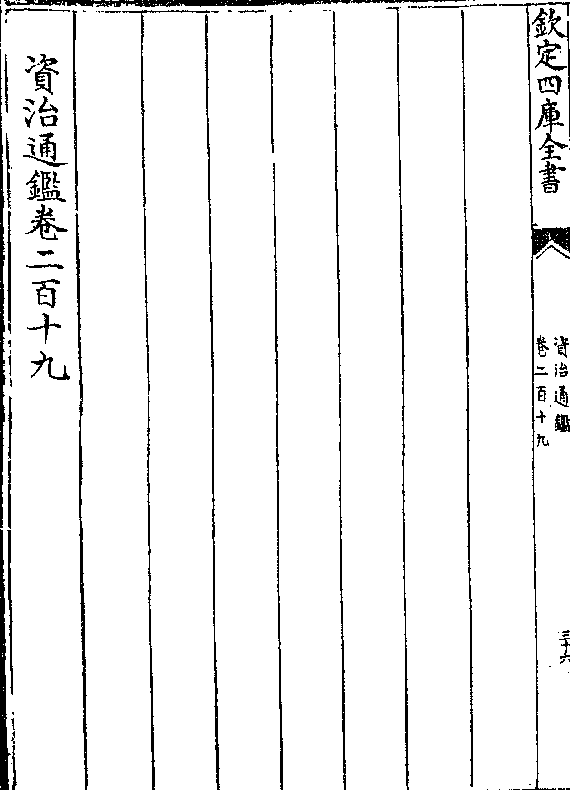 欽定四庫全書
資治通鑑
卷二百十九
三十六
資治通鑑卷二百十九